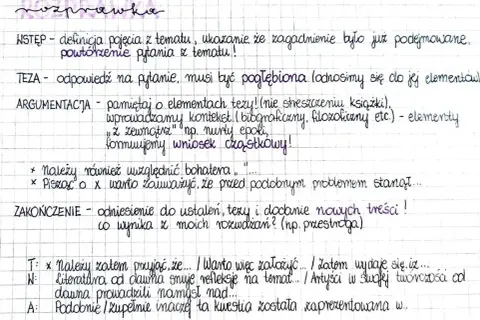 rozprawka
WSTĘP - definicja pojęcia z tematu, ukazanie, że zagadnienie było już podejmowane,
powtórzenie pytania z tematu!
TEZA - odpowiedź na pytanie, musi być pogłębiona (odnosimy się do jej elementów)
ARGUMENTACJA - pamiętaj o elementach tezy! (nie streszczeniu książki),
wprowadzamy kontekst (biograficzny, filozoficzny etc.) - elementy
"z zewnątrz" np. nurty epoki,
formułujemy wniosek cząstkowy!
* Należy również uwzględnić bohatera „ "...
* Pisząc o x warto zauważyć, że przed podobnym problemem stanął...
ZAKOŃCZENIE - odniesienie do ustaleń, tezy i dodanie nowych treści!
co wynika z moich rozważań? (np. przestroga)
T: * Należy zatem przyjąć, że... / Warto więc założyć... / Zatem wydaje się, iż...
W: Literatura od dawna snuje refleksje na temat... / Artyści w swojej twórczości od
dawna prowadzili namysł nad...
A: Podobnie / zupełnie inaczej ta kwestia została zaprezentowana w...